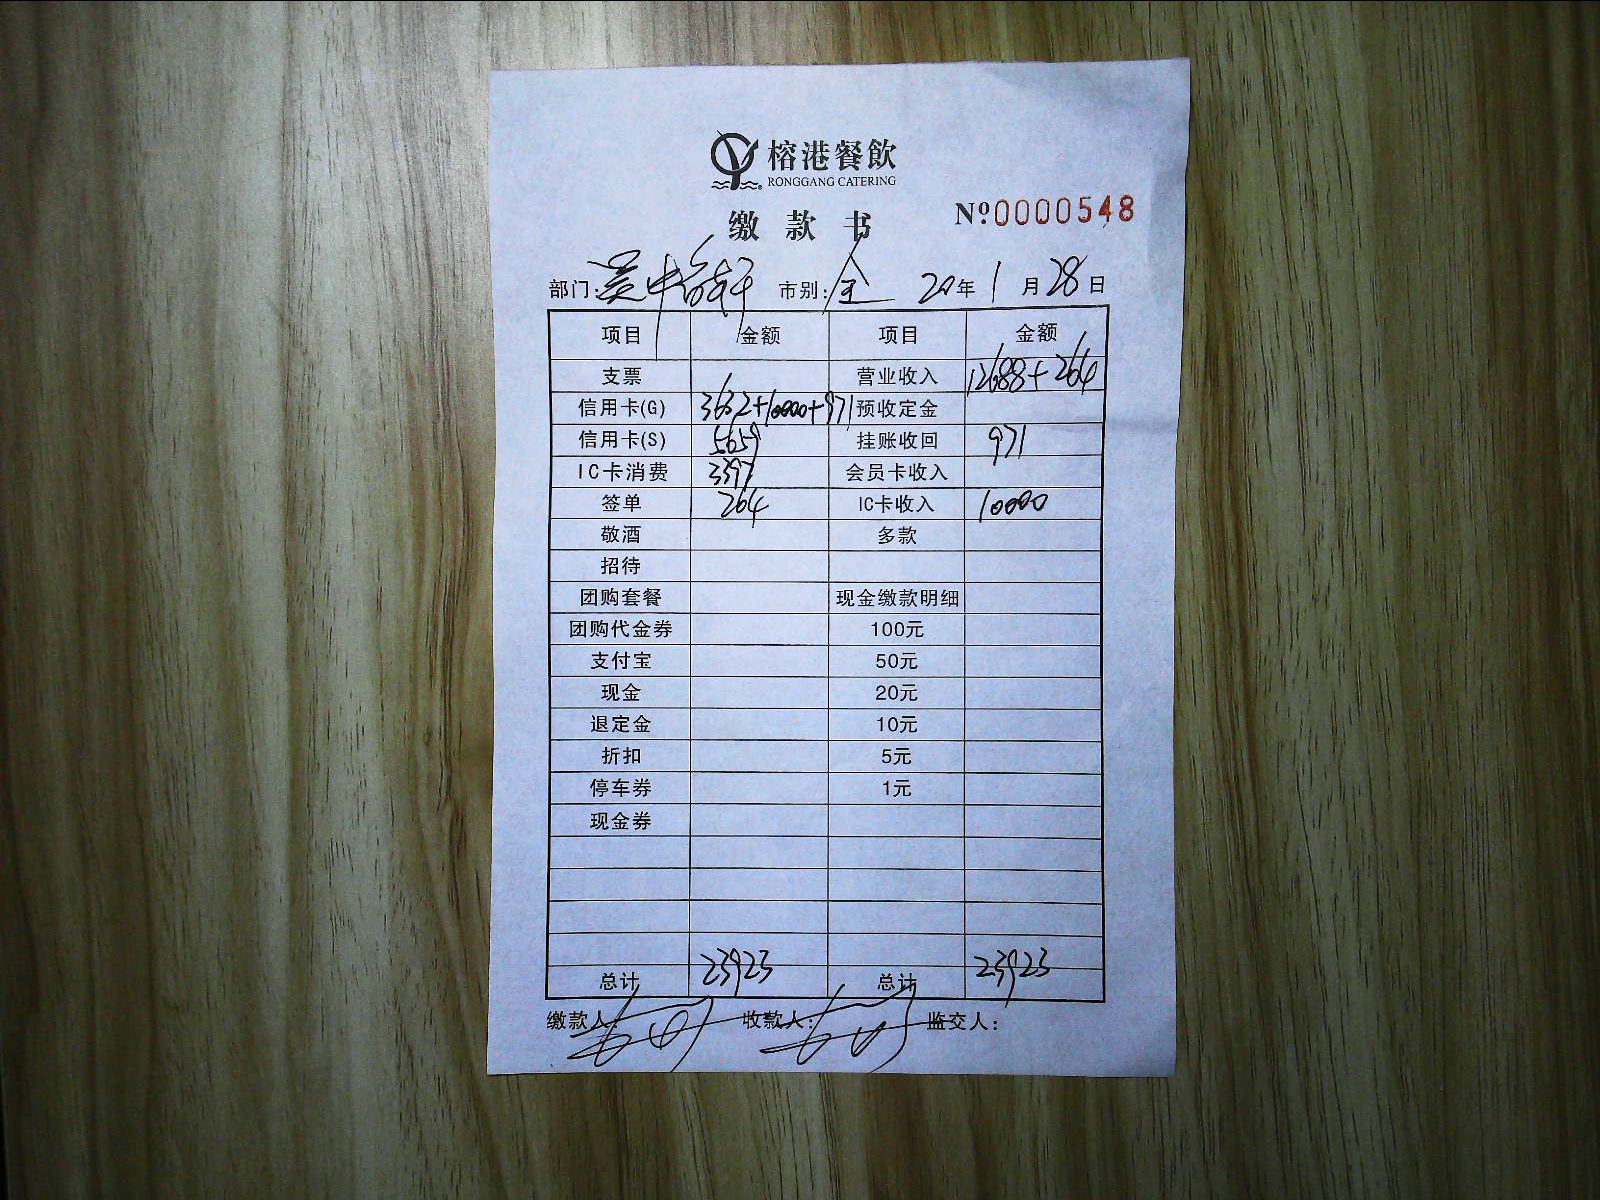 榕港餐飲
RONGGANG CATERING
缴款书 №0000548
部门: 吴中 轩 市别: 全 20年1月28日
项目 金额 项目 金额
支票 营业收入 12688+264
信用卡(G) 3632+10000+971 预收定金
信用卡(S) 5659 挂账收回 971
IC卡消费 3397 会员卡收入
签单 264 IC卡收入 10000
敬酒 多款
招待
团购套餐 现金缴款明细
团购代金券 100元
支付宝 50元
现金 20元
退定金 10元
折扣 5元
停车券 1元
现金券
总计 23923 总计 23923
缴款人: 收款人: 监交人: